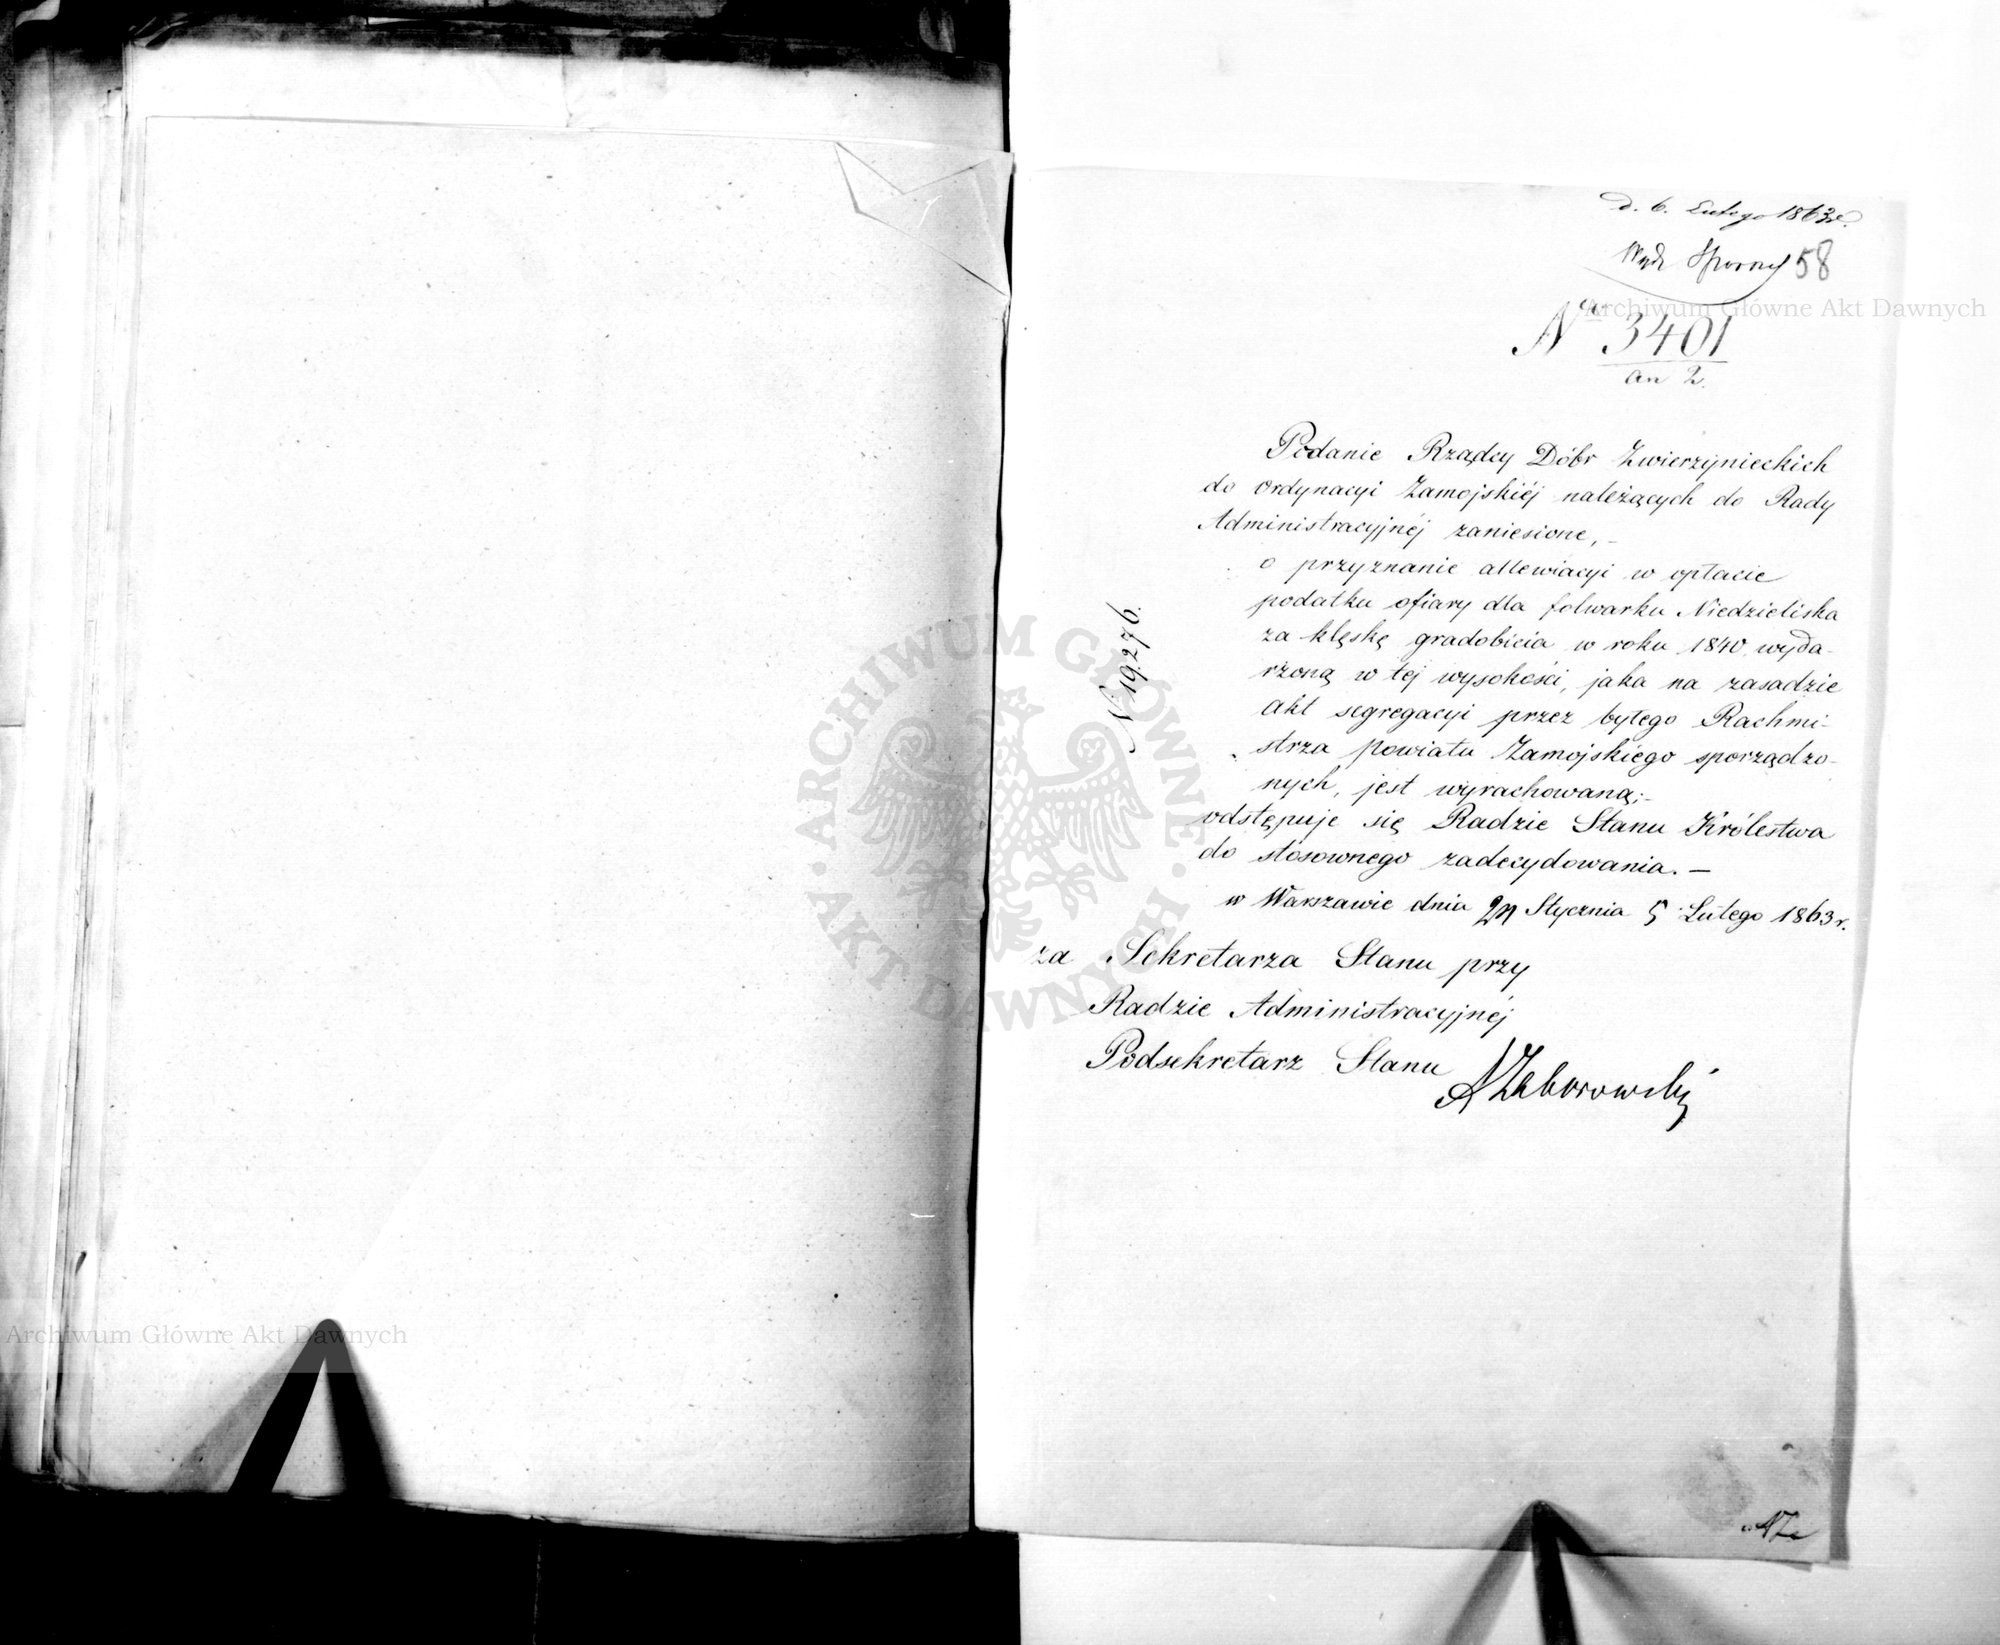 d. 6. Lutego 1863 r.
Wydz Sporny 58
No 3401
an 2.
Podanie Rządcy Dóbr Zwierzynieckich
do Ordynacyi Zamojskiéj należących do Rady
Administracyjnéj zaniesione, –
o przyznanie allewiacyi w opłacie
podatku ofiary dla folwarku Niedzieliska
za klęskę gradobicia w roku 1840 wyda-
rzoną w tej wysokości, jaka na zasadzie
akt segregacyi przez byłego Rachmi-
strza powiatu Zamojskiego sporządzo-
nych, jest wyrachowaną; –
odstępuje się Radzie Stanu Królestwa
do stosownego zadecydowania. –
w Warszawie dnia Stycznia 5 Lutego 1863 r.
za Sekretarza Stanu przy
Radzie Administracyjnéj
Podsekretarz Stanu
AZaborowski
N 19276.
Archiwum Główne Akt Dawnych
ARCHIWUM GŁÓWNE · AKT DAWNYCH ·
Archiwum Główne Akt Dawnych